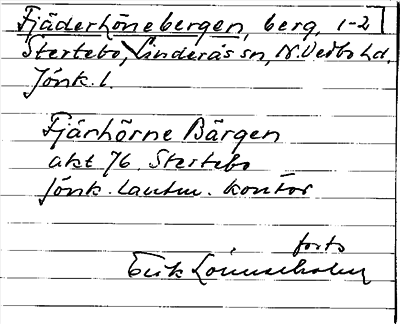 Fjäderhönebergen, berg, 1-2
Stertebo, Linderås sn, N. Vedbo hd,
Jönk. l.
Fjärhörne Bärgen
akt 76 Stertebo
Jönk. lantm. kontor
forts
Erik Lönnerholm